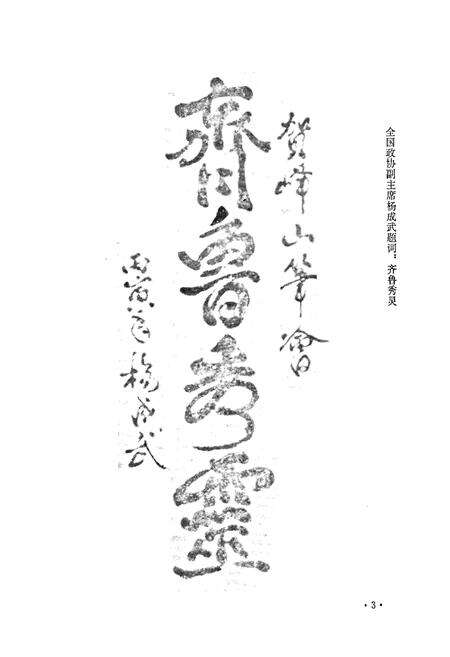 全国政协副主席杨成武题词：齐鲁秀灵
賀峰山筆會
齊魯秀靈
丙寅年楊成武
·3·